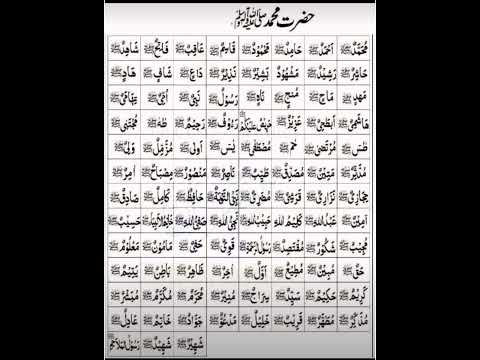 حضرت محمد صلی اللہ علیہ وآلہ وسلم
مُحَمَّدٌ ﷺ اَحْمَدٌ ﷺ حَامِدٌ ﷺ مَحْمُودٌ ﷺ قَاسِمٌ ﷺ عَاقِبٌ ﷺ فَاتِحٌ ﷺ شَاهِدٌ ﷺ
حَاشِرٌ ﷺ رَشِيدٌ ﷺ مَشْهُودٌ ﷺ بَشِيرٌ ﷺ نَذِيرٌ ﷺ دَاعٍ ﷺ شَافٍ ﷺ هَادٍ ﷺ
مَهْدٍ ﷺ مَاحٍ ﷺ مُنْجٍ ﷺ نَاهٍ ﷺ رَسُولٌ ﷺ نَبِيٌّ ﷺ اُمِّيٌّ ﷺ تِهَامِيٌّ ﷺ
هَاشِمِيٌّ ﷺ اَبْطَحِيٌّ ﷺ عَزِيزٌ ﷺ حَرِيصٌ عَلَيْكُمْ ﷺ رَءُوفٌ ﷺ رَحِيمٌ ﷺ طٰهٰ ﷺ مُجْتَبٰى ﷺ
طٰسٓ ﷺ مُرْتَضٰى ﷺ حٰمٓ ﷺ مُصْطَفٰى ﷺ يٰسٓ ﷺ اَوْلٰى ﷺ مُزَّمِّلٌ ﷺ وَلِيٌّ ﷺ
مُدَّثِّرٌ ﷺ مَتِينٌ ﷺ مُصَدِّقٌ ﷺ طَيِّبٌ ﷺ نَاصِرٌ ﷺ مَنْصُورٌ ﷺ مِصْبَاحٌ ﷺ اٰمِرٌ ﷺ
حِجَازِيٌّ ﷺ نَزَارِيٌّ ﷺ قُرَشِيٌّ ﷺ مُضَرِيٌّ ﷺ نَبِيُّ التَّوْبَةِ ﷺ حَافِظٌ ﷺ كَامِلٌ ﷺ صَادِقٌ ﷺ
اَمِينٌ ﷺ عَبْدُ اللهِ ﷺ كَلِيمُ اللهِ ﷺ حَبِيبُ اللهِ ﷺ نَجِيُّ اللهِ ﷺ صَفِيُّ اللهِ ﷺ خَاتَمُ الْاَنْبِيَاءِ ﷺ حَسِيبٌ ﷺ
مُجِيبٌ ﷺ شَكُورٌ ﷺ مُقْتَصِدٌ ﷺ رَسُولُ الرَّحْمَةِ ﷺ قَوِيٌّ ﷺ حَفِيٌّ ﷺ مَامُونٌ ﷺ مَعْلُومٌ ﷺ
حَقٌّ ﷺ مُبِينٌ ﷺ مُطِيعٌ ﷺ اَوَّلٌ ﷺ اٰخِرٌ ﷺ ظَاهِرٌ ﷺ بَاطِنٌ ﷺ يَتِيمٌ ﷺ
كَرِيمٌ ﷺ حَكِيمٌ ﷺ سَيِّدٌ ﷺ سِرَاجٌ ﷺ مُنِيرٌ ﷺ مُحَرَّمٌ ﷺ مُكَرَّمٌ ﷺ مُبَشِّرٌ ﷺ
مُذَكِّرٌ ﷺ مُطَهَّرٌ ﷺ قَرِيبٌ ﷺ خَلِيلٌ ﷺ مَدْعُوٌّ ﷺ جَوَادٌ ﷺ خَاتِمٌ ﷺ عَادِلٌ ﷺ
شَهِيرٌ ﷺ شَهِيدٌ ﷺ رَسُولُ الْمَلَاحِمِ ﷺ